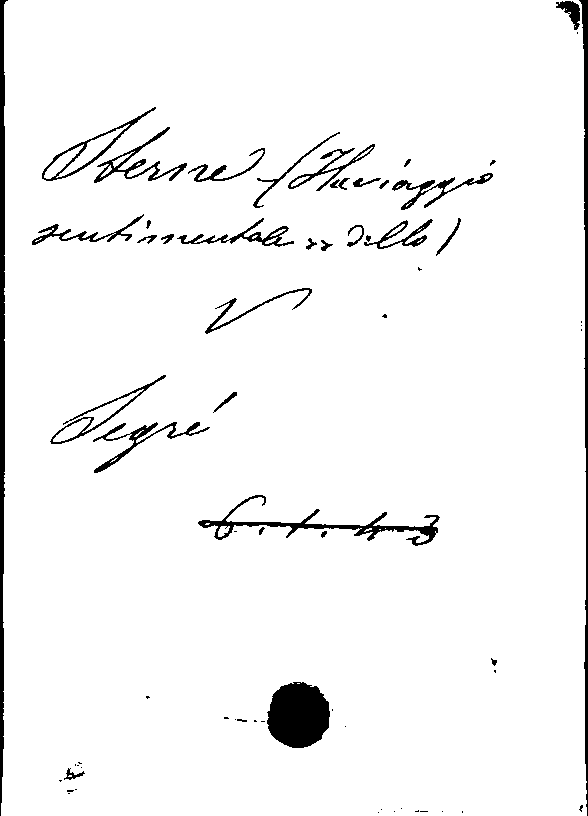 Sterne (Il viaggio
sentimentale »» dello)
V
Segré
6.1.43